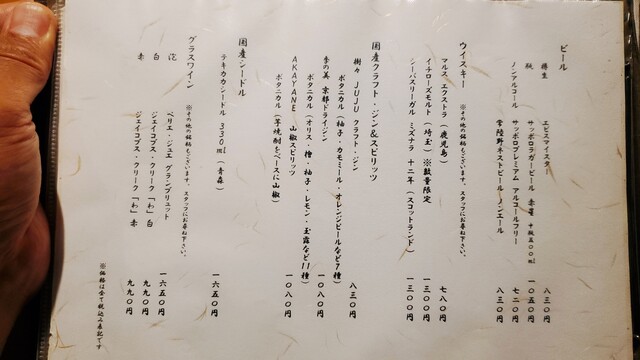 ビール
樽生 エビスマイスター 八三〇円
瓶 サッポロラガービール 赤星 中瓶五〇〇ml 一〇五〇円
ノンアルコール サッポロプレミアム アルコールフリー 七二〇円
常陸野ネストビール ノンエール 八三〇円
ウイスキー ※その他の銘柄もございます。スタッフにお尋ね下さい。
マルス エクストラ（鹿児島） 七八〇円
イチローズモルト（埼玉）※数量限定 一三〇〇円
シーバスリーガル ミズナラ 十二年（スコットランド） 一三〇〇円
国産クラフト・ジン&スピリッツ
樹々 JUJU クラフト・ジン 八三〇円
ボタニカル（柚子・カモミール・オレンジピールなど7種）
季の美 京都ドライ・ジン 一〇八〇円
ボタニカル（オリス・檜・柚子・レモン・玉露など11種）
AKAYANE 山椒スピリッツ 一〇八〇円
ボタニカル（芋焼酎をベースに山椒）
国産シードル
テキカカシードル 330ml（青森） 一六五〇円
グラスワイン ※その他の銘柄もございます。スタッフにお尋ね下さい。
泡 ペリエ・ジュエ グランブリュット 一六五〇円
白 ジェイコブス・クリーク「わ」白 九九〇円
赤 ジェイコブス・クリーク「わ」赤 九九〇円
※価格は全て税込み表記です